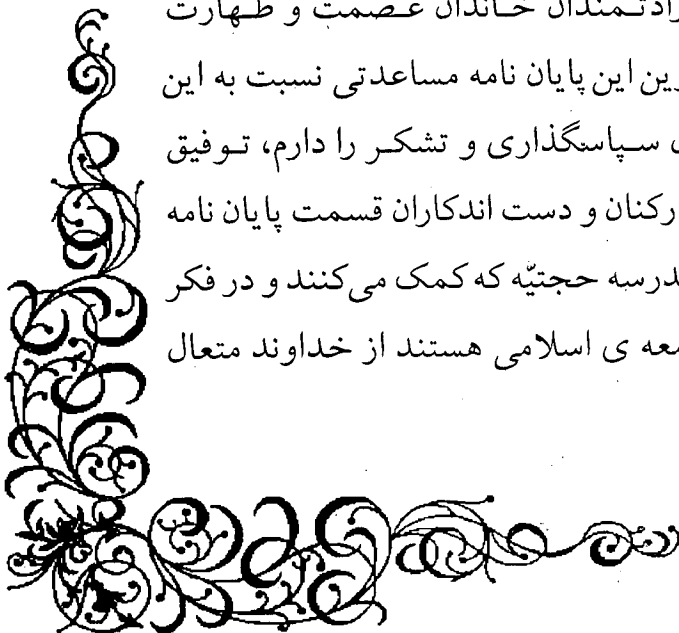 خاندان عصمت و طهارت
این پایان نامه مساعدتی نسبت به این
سپاسگذاری و تشکر را دارم، توفیق
و دست اندکاران قسمت پایان نامه
حجتیّه که کمک می‌کنند و در فکر
ی اسلامی هستند از خداوند متعال